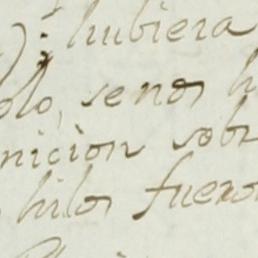 hubiera
olo, se nos h
nicion sobr
hilos fueron